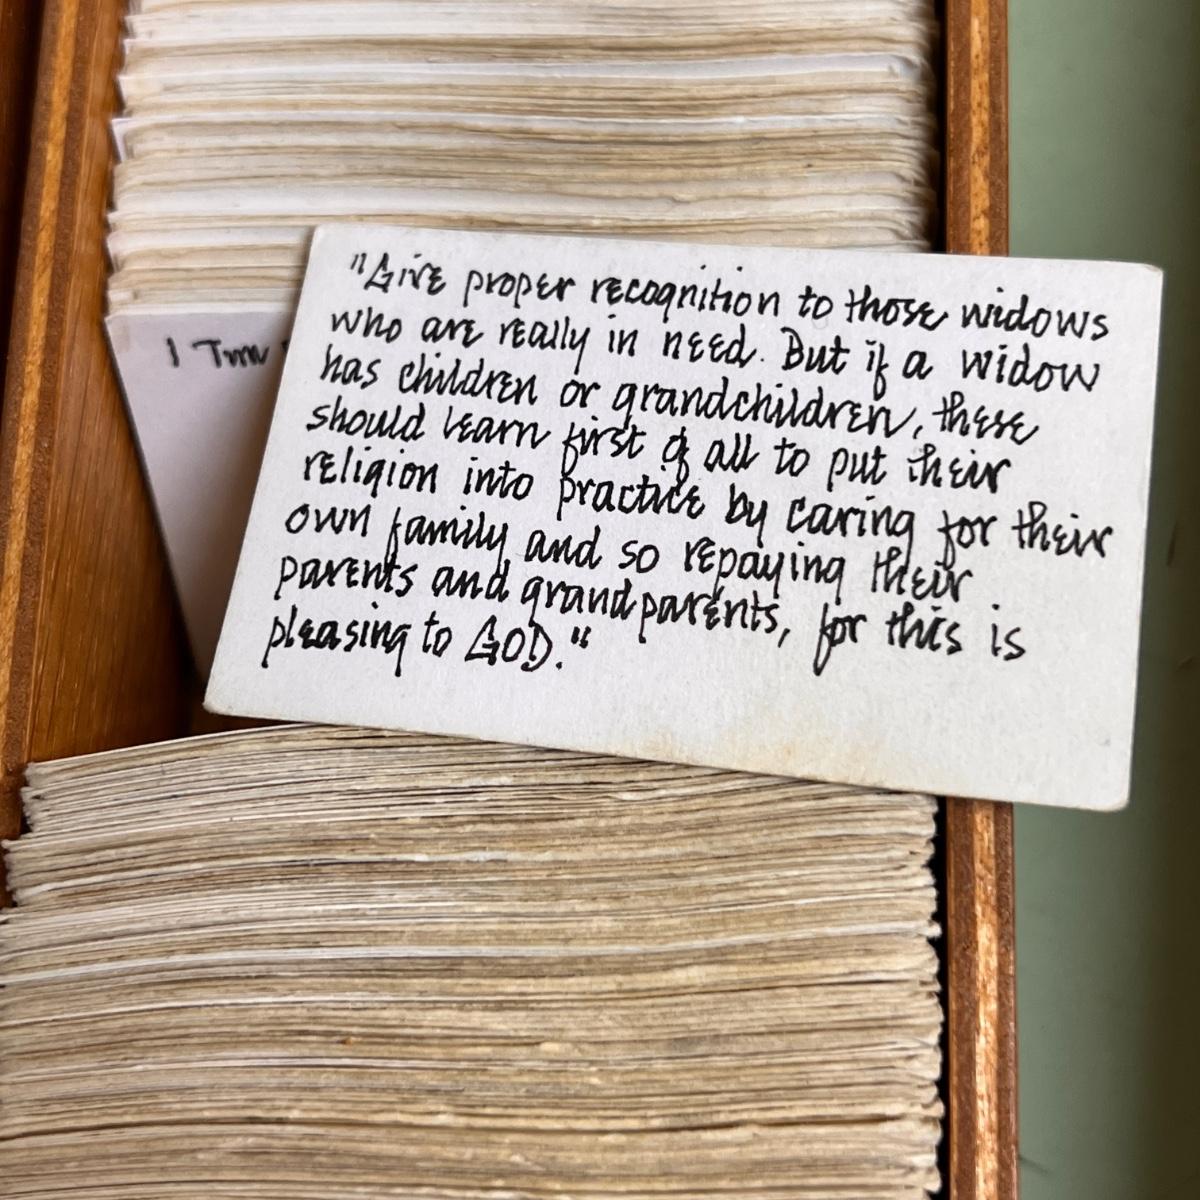 1 Tim
"Give proper recognition to those widows
who are really in need. But if a widow
has children or grandchildren, these
should learn first of all to put their
religion into practice by caring for their
own family and so repaying their
parents and grandparents, for this is
pleasing to GOD."